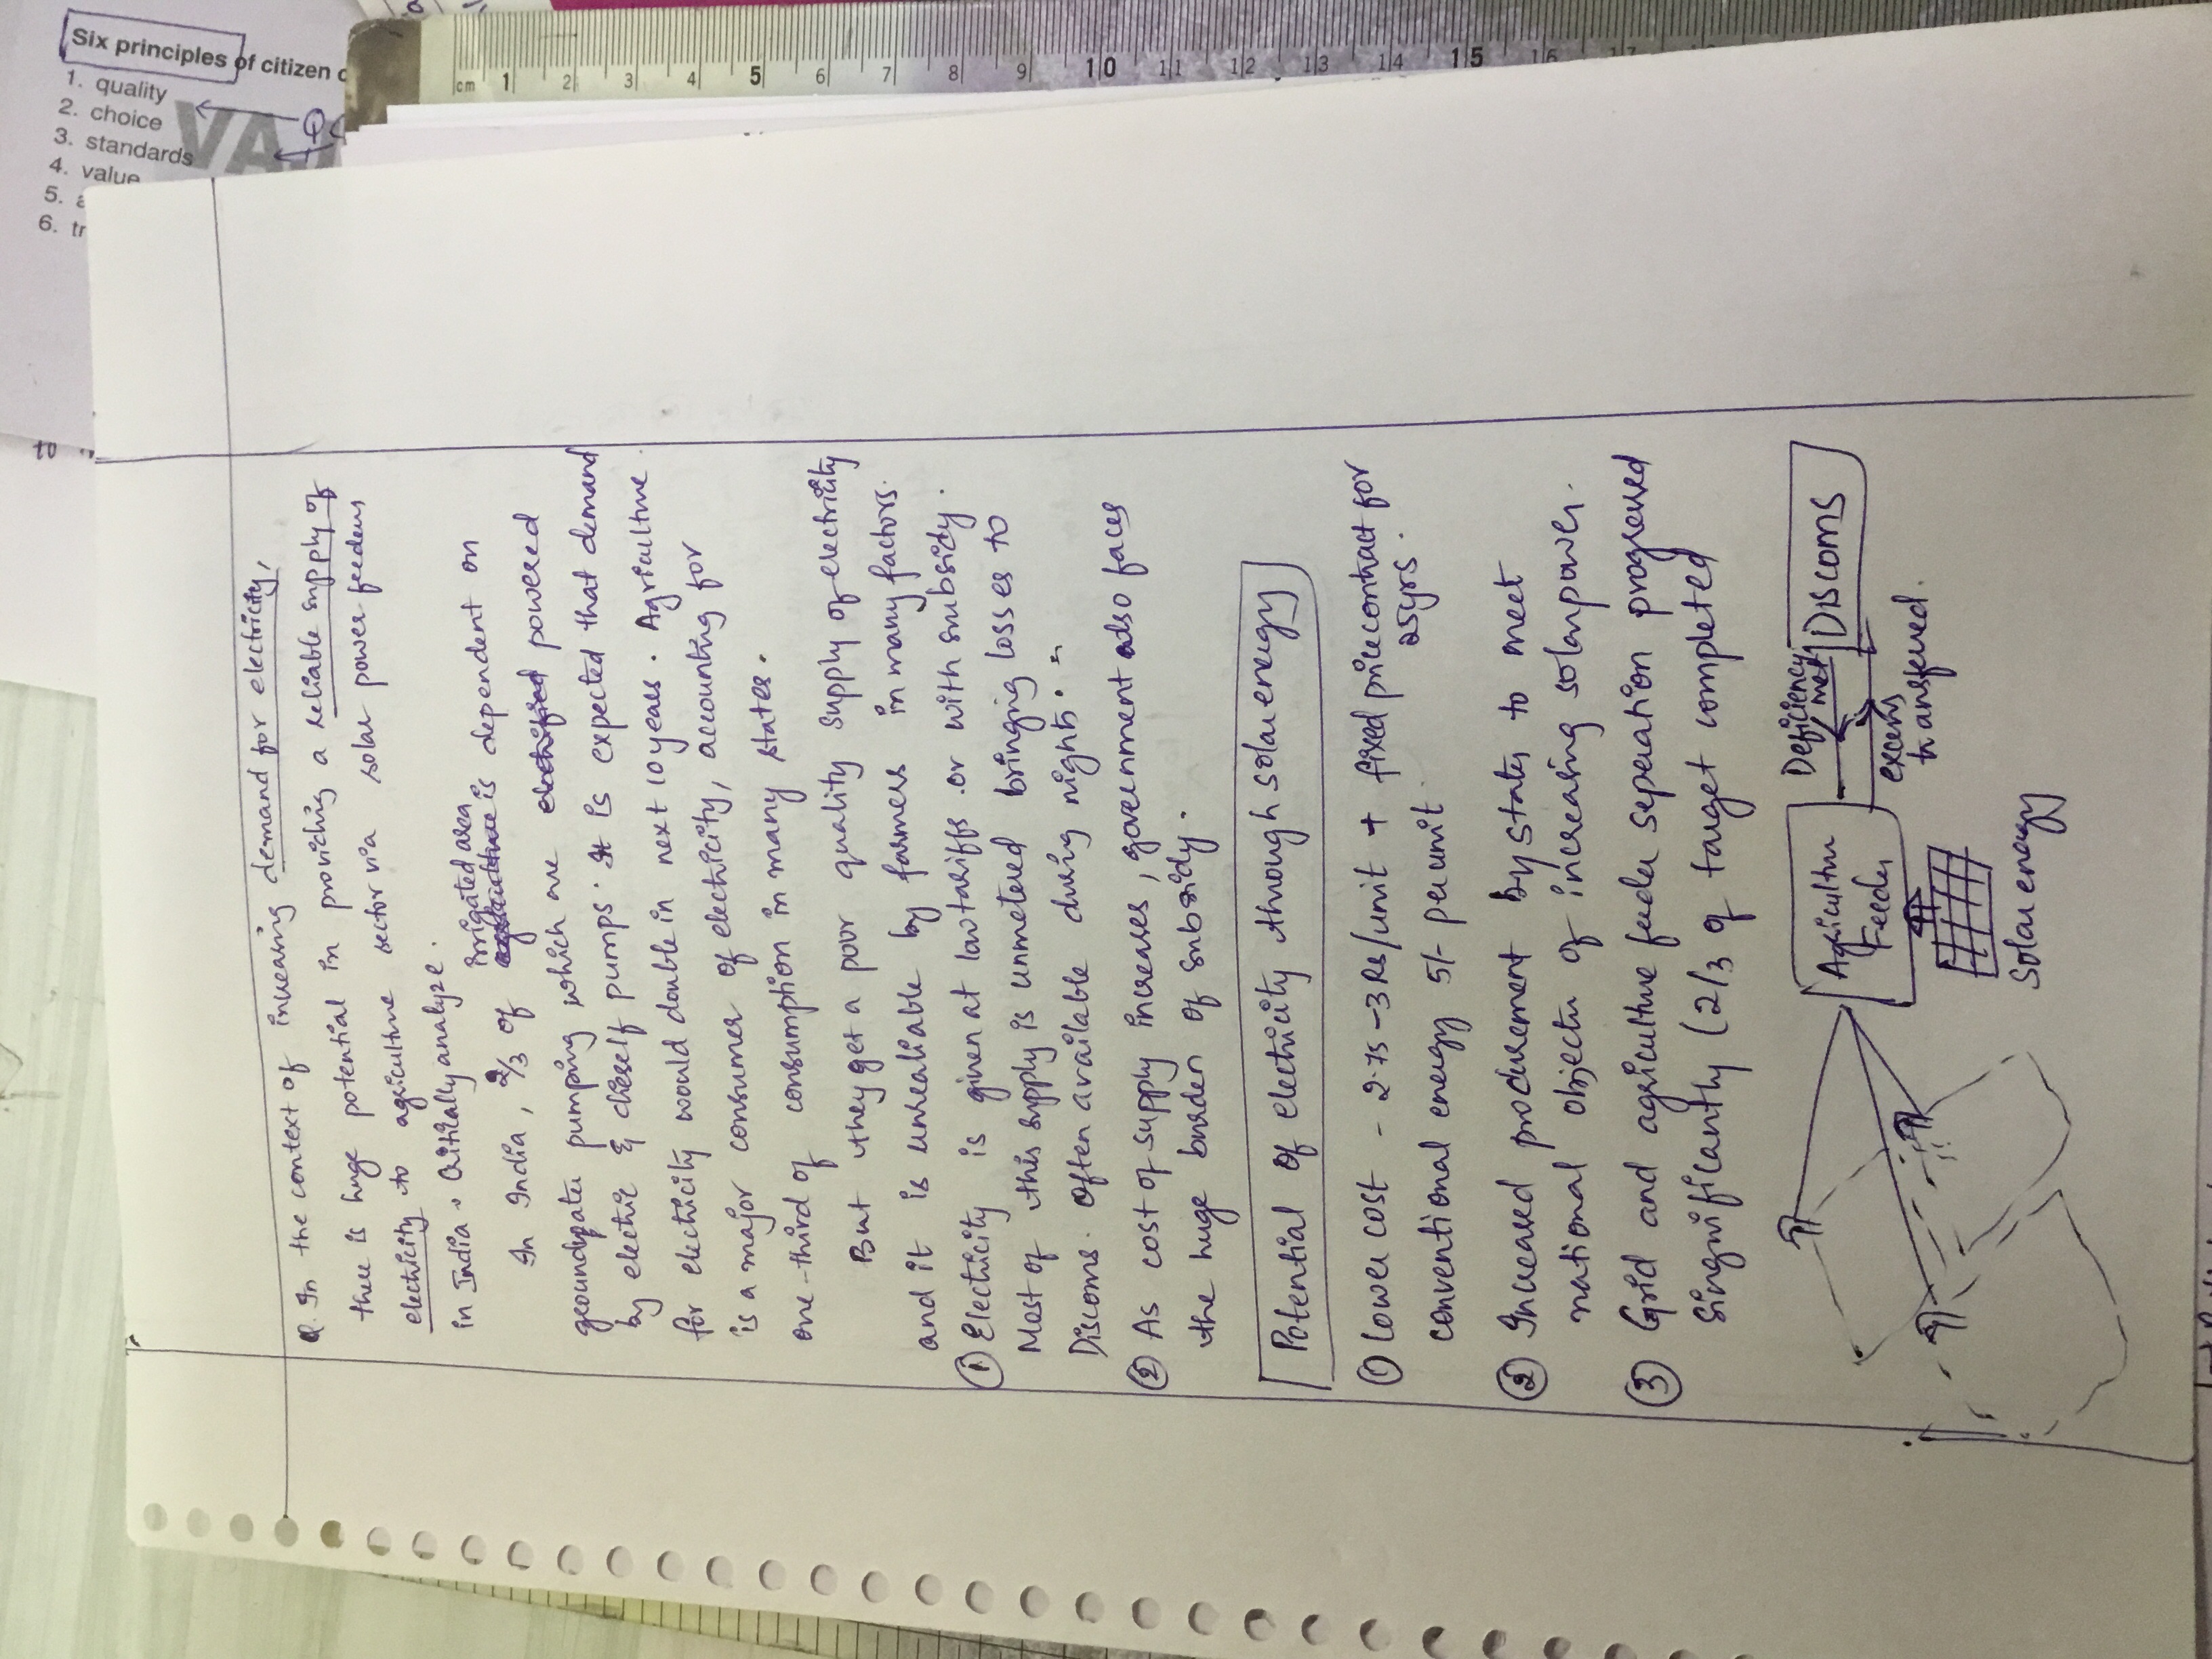 Six principles of citizen c
1. quality
2. choice
3. standards
4. value
5. a
6. tr
VA
to
cm 1 2 3 4 5 6 7 8 9 10 11 12 13 14 15 16 17
Q. In the context of increasing demand for electricity,
there is huge potential in providing a reliable supply of
electricity to agriculture sector via solar power feeders
in India. Critically analyze.
irrigated area
In India, 2/3 of is dependent on
groundwater pumping which are powered
by electric & diesel pumps. It is expected that demand
for electricity would double in next 10 years. Agriculture
is a major consumer of electricity, accounting for
one-third of consumption in many states.
But they get a poor quality supply of electricity
and it is unreliable by farmers in many factors.
① Electricity is given at low tariffs or with subsidy.
Most of this supply is unmetered bringing losses to
Discoms. Often available during nights.
② As cost of supply increases, government also faces
the huge burden of subsidy.
Potential of electricity through solar energy
① lower cost - 2.75-3 Rs/unit + fixed price contract for
25yrs.
conventional energy 5/- per unit.
② Increased procurement by states to meet
national objectv of increasing solar power.
③ Grid and agriculture feeder seperation progressed
singnificantly (2/3 of target completed
Agricultur
Feeder
Deficiency
met
DISCOMS
excess
transfered.
Solar energy